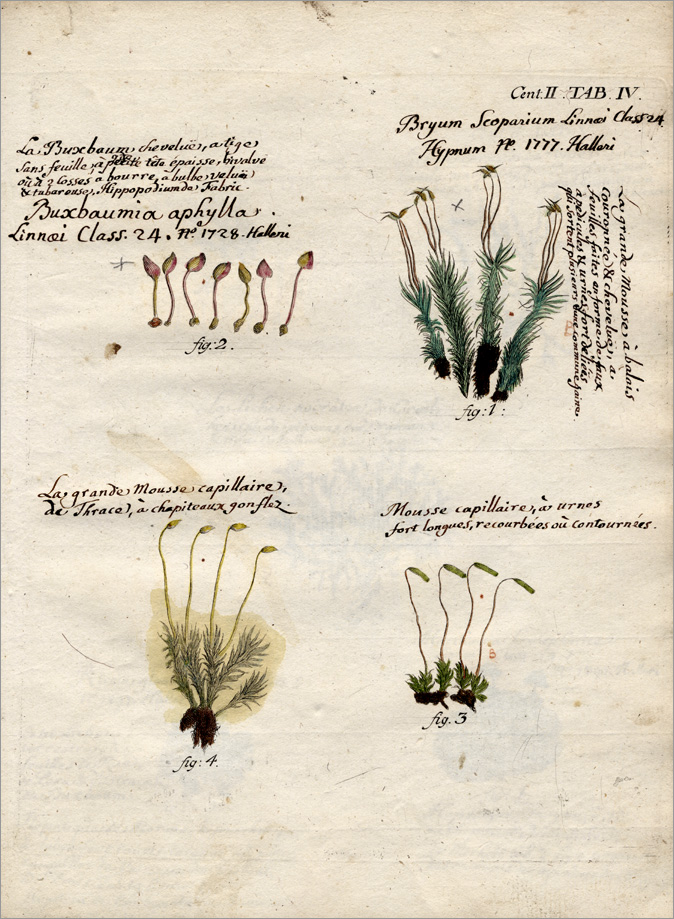 Cent. II. TAB. IV.
Bryum Scoparium Linnœi Class 24
Hypnum No. 1777. Halleri
La grande Mousse à balais
Couronnée & chevelue, à
feuilles faites en forme de faux
à pédicules & urnes fort deliées
qui sortent plusieurs d'une commune gaine.
fig: 1:
La Buxbaum chevelue, a tige
Sans feuille, a petite téte épaisse, bivalve
où à 2 cosses à bourre, à bulbe velue
& tubereuse, Hippopodium de Fabric.
Buxbaumia aphylla.
Linnœi Class. 24. No 1728. Halleri
fig: 2.
La grande Mousse capillaire,
de Thrace, à chapiteaux gonflez.
fig: 4.
Mousse capillaire, à urnes
fort longues, recourbées où contournées.
B
fig. 3